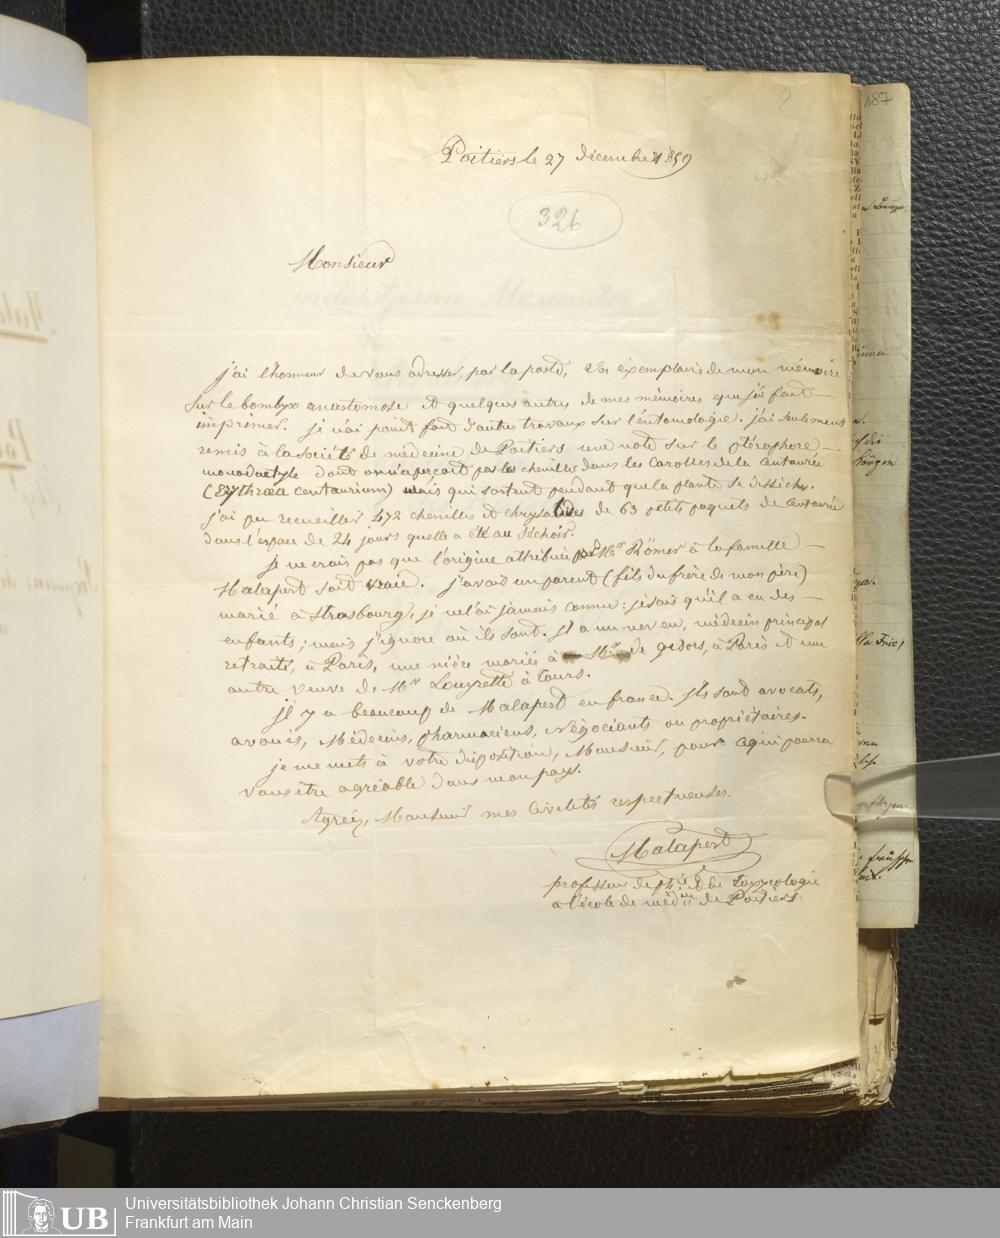 187
Poitiers le 27 décembre 1859
326
Monsieur
j'ai l'honneur de vous adresser, par la poste, un exemplaire de mon mémoire
sur le bombyx anastomose et quelques autres de mes mémoires que j'ai fait
imprimer. je n'ai point fait d'autres travaux sur l'entomologie. j'ai seulement
remis à la société de médecine de Poitiers une note sur le ptérophore
monodactyle dont on n'aperçoit pas les chenilles dans les Corolles de la Centaurée
(Erythroea Centaurium) mais qui sortent pendant que la plante se dessèche.
j'ai pu recueillir 472 chenilles et chrysalides de 63 petits paquets de centaurée
dans l'espace de 24 jours quelle a été au séchoir.
je ne crois pas que l'origine attribuée par Mr Römer à la famille
Malapert soit vraie. j'avais un parent (fils du frère de mon père)
marié à Strasbourg, je ne l'ai jamais connu: je sais qu'il a eu des
enfants; mais j'ignore où ils sont. Il a un neveu, médecin principal
retraité, à Paris, une nièce mariée à Mr de gisors, à Paris et une
autre veuve de Mr Louyrette à tours.
Il y a beaucoup de Malapert en france. Ils sont avocats,
avoués, Médecins, pharmaciens, Négociants ou propriétaires.
je me mets à votre disposition, Monsieur, pour ce qui pourra
vous être agréable dans mon pays.
Agréez, Monsieur mes Civilités respectueuses.
Malapert
professeur de phie et de toxicologie
à l'école de médne de Poitiers
UB
Universitätsbibliothek Johann Christian Senckenberg
Frankfurt am Main